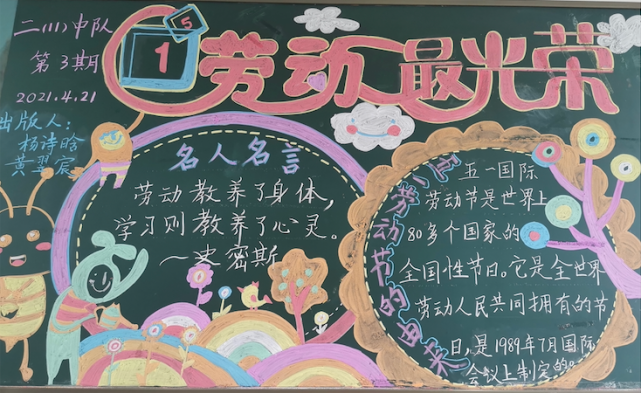 二(1)中队
第3期
2021.4.21
出版人:
杨诗晗
黄翌宸
5
1
劳动最光荣
名人名言
劳动教养了身体,
学习则教养了心灵。
—史密斯
劳动节的由来
五一国际
劳动节是世界上
80多个国家的
全国性节日。它是全世界
劳动人民共同拥有的节
日,是1989年7月国际
会议上制定的